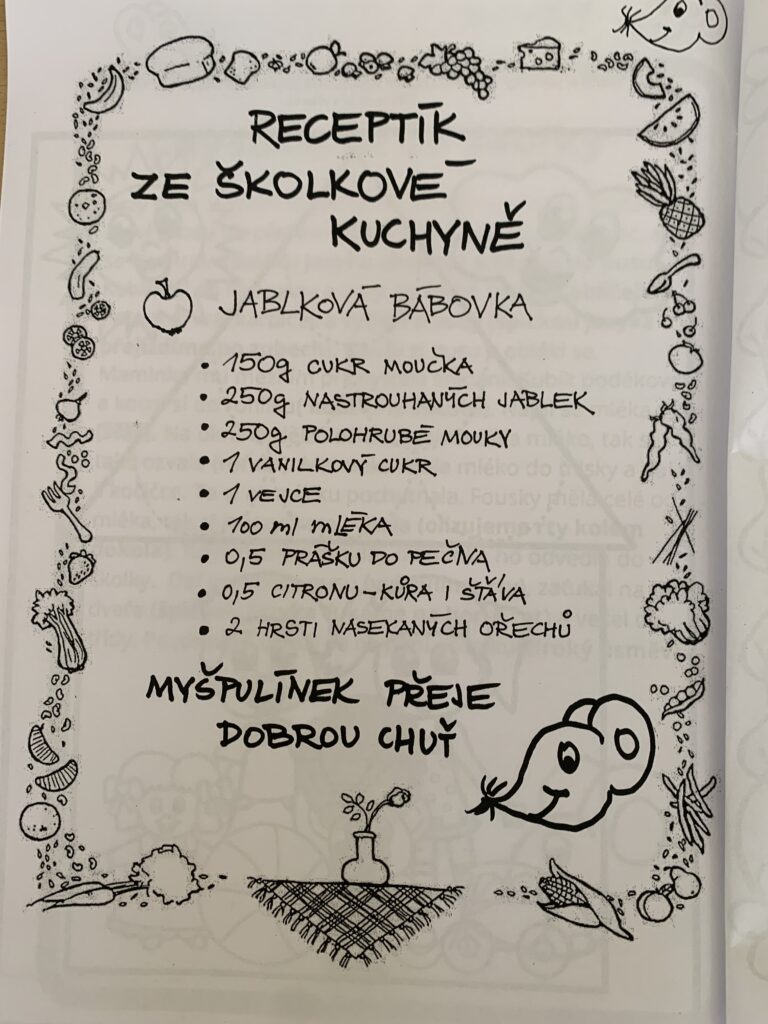 RECEPTÍK
ZE ŠKOLKOVÉ
KUCHYNĚ
JABLKOVÁ BÁBOVKA
• 150g CUKR MOUČKA
• 250g NASTROUHANÝCH JABLEK
• 250g POLOHRUBÉ MOUKY
• 1 VANILKOVÝ CUKR
• 1 VEJCE
• 100 ml MLÉKA
• 0,5 PRÁŠKU DO PEČIVA
• 0,5 CITRONU-KŮRA I ŠŤÁVA
• 2 HRSTI NASEKANÝCH OŘECHŮ
MYŠPULÍNEK PŘEJE
DOBROU CHUŤ